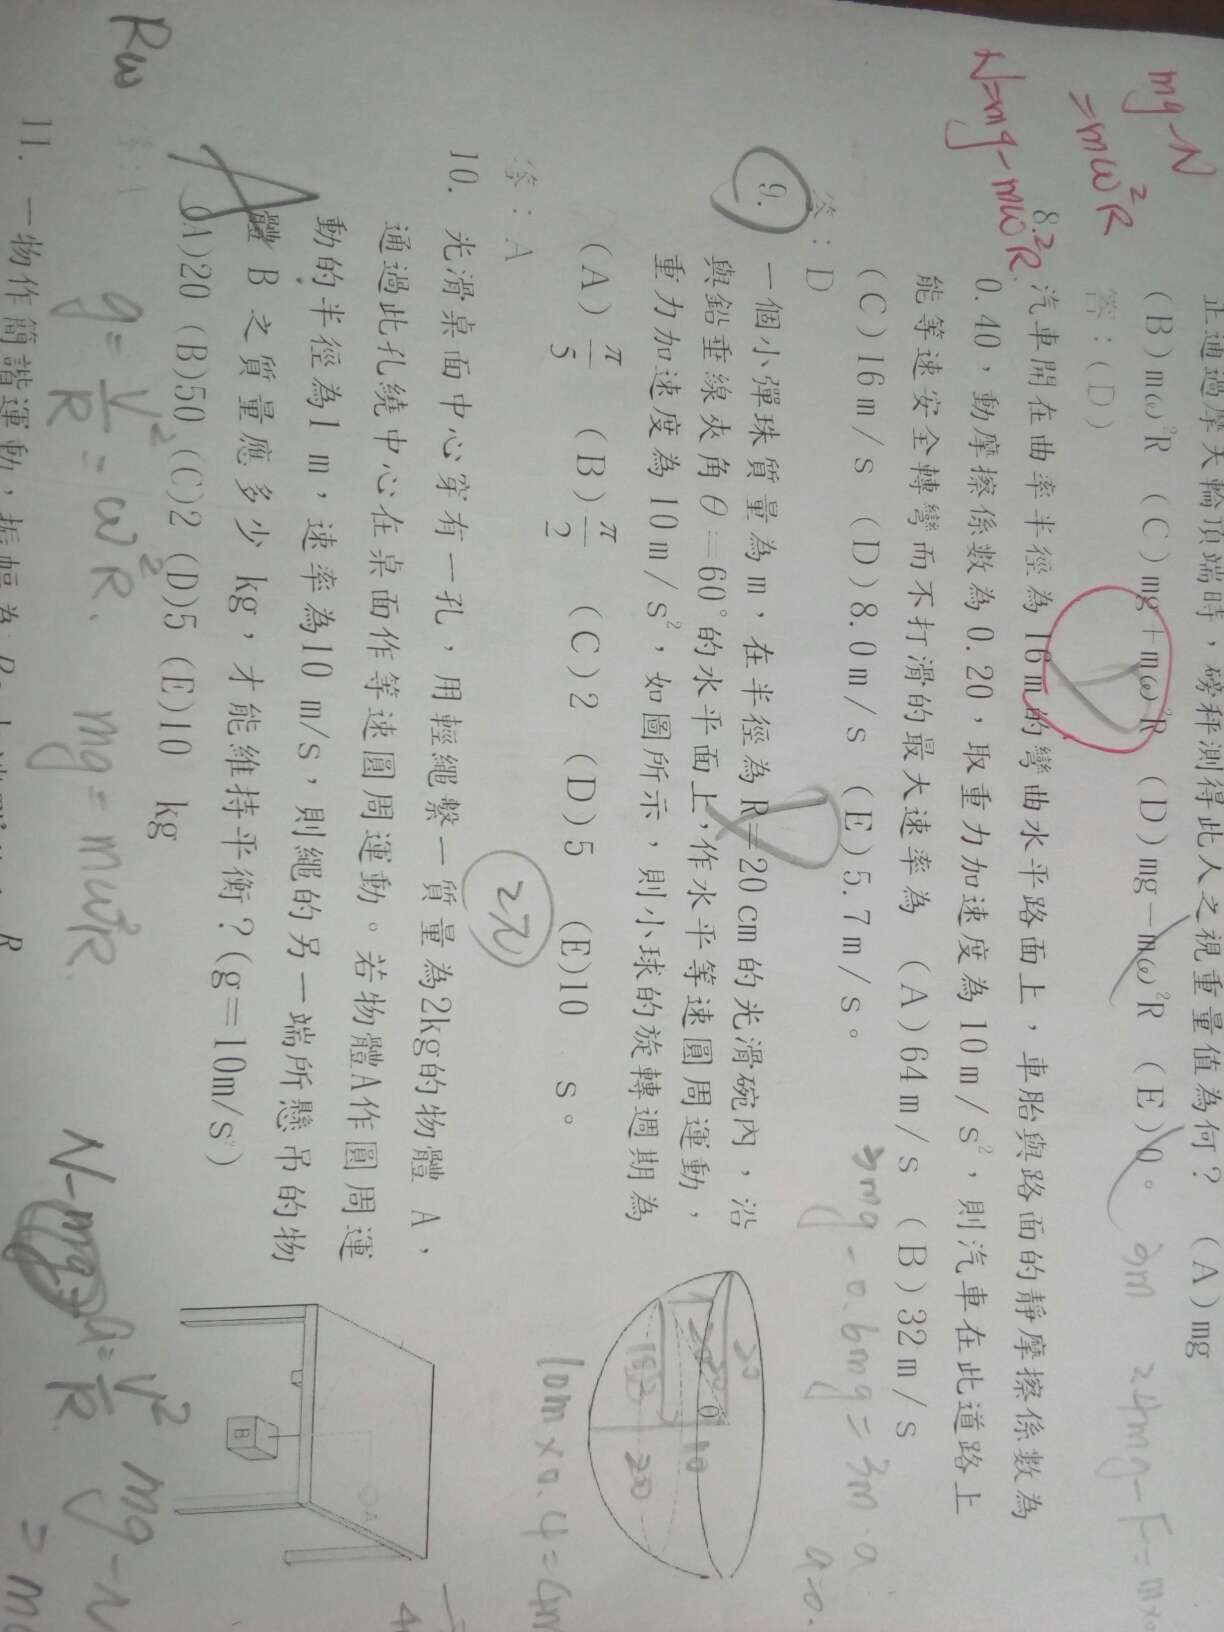 正通過摩天輪頂端時，磅秤測得此人之視重量值為何？ (A)mg
(B)mω²R (C)mg＋mω²R (D)mg－mω²R (E)0。
答：(D)
8. 汽車開在曲率半徑為16m的彎曲水平路面上，車胎與路面的靜摩擦係數為
0.40，動摩擦係數為0.20，取重力加速度為10m/s²，則汽車在此道路上
能等速安全轉彎而不打滑的最大速率為 (A)64m/s (B)32m/s
(C)16m/s (D)8.0m/s (E)5.7m/s。
答：D
9. 一個小彈珠質量為m，在半徑為R＝20cm的光滑碗內，沿
與鉛垂線夾角θ＝60°的水平面上，作水平等速圓周運動，
重力加速度為10m/s²，如圖所示，則小球的旋轉週期為
(A)π/5 (B)π/2 (C)2 (D)5 (E)10 s。
答：A
10. 光滑桌面中心穿有一孔，用輕繩繫一質量為2kg的物體 A，
通過此孔繞中心在桌面作等速圓周運動。若物體A作圓周運
動的半徑為1m，速率為10 m/s，則繩的另一端所懸吊的物
體 B 之質量應多少 kg，才能維持平衡？(g＝10m/s²)
(A)20 (B)50 (C)2 (D)5 (E)10 kg
11. 一物作簡諧運動，振幅為
mg-N
=mω²R
N=mg-mω²R
3mg-0.6mg=3m·a
a=0.
3m
2.4mg-F=m
2π
10m×0.4=4m
30
θ
10
200
A
B
Rω
g=V²/R=ω²R.
mg=mω²R.
N-mg
a=V²/R
mg-N
=m